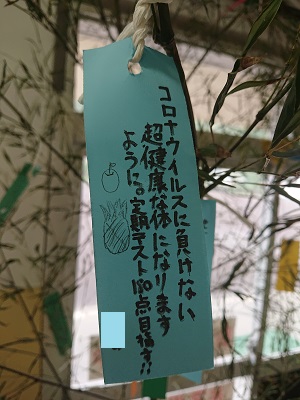 コロナウイルスに負けない
超健康な体になります
ように。定期テスト100点目指す!!